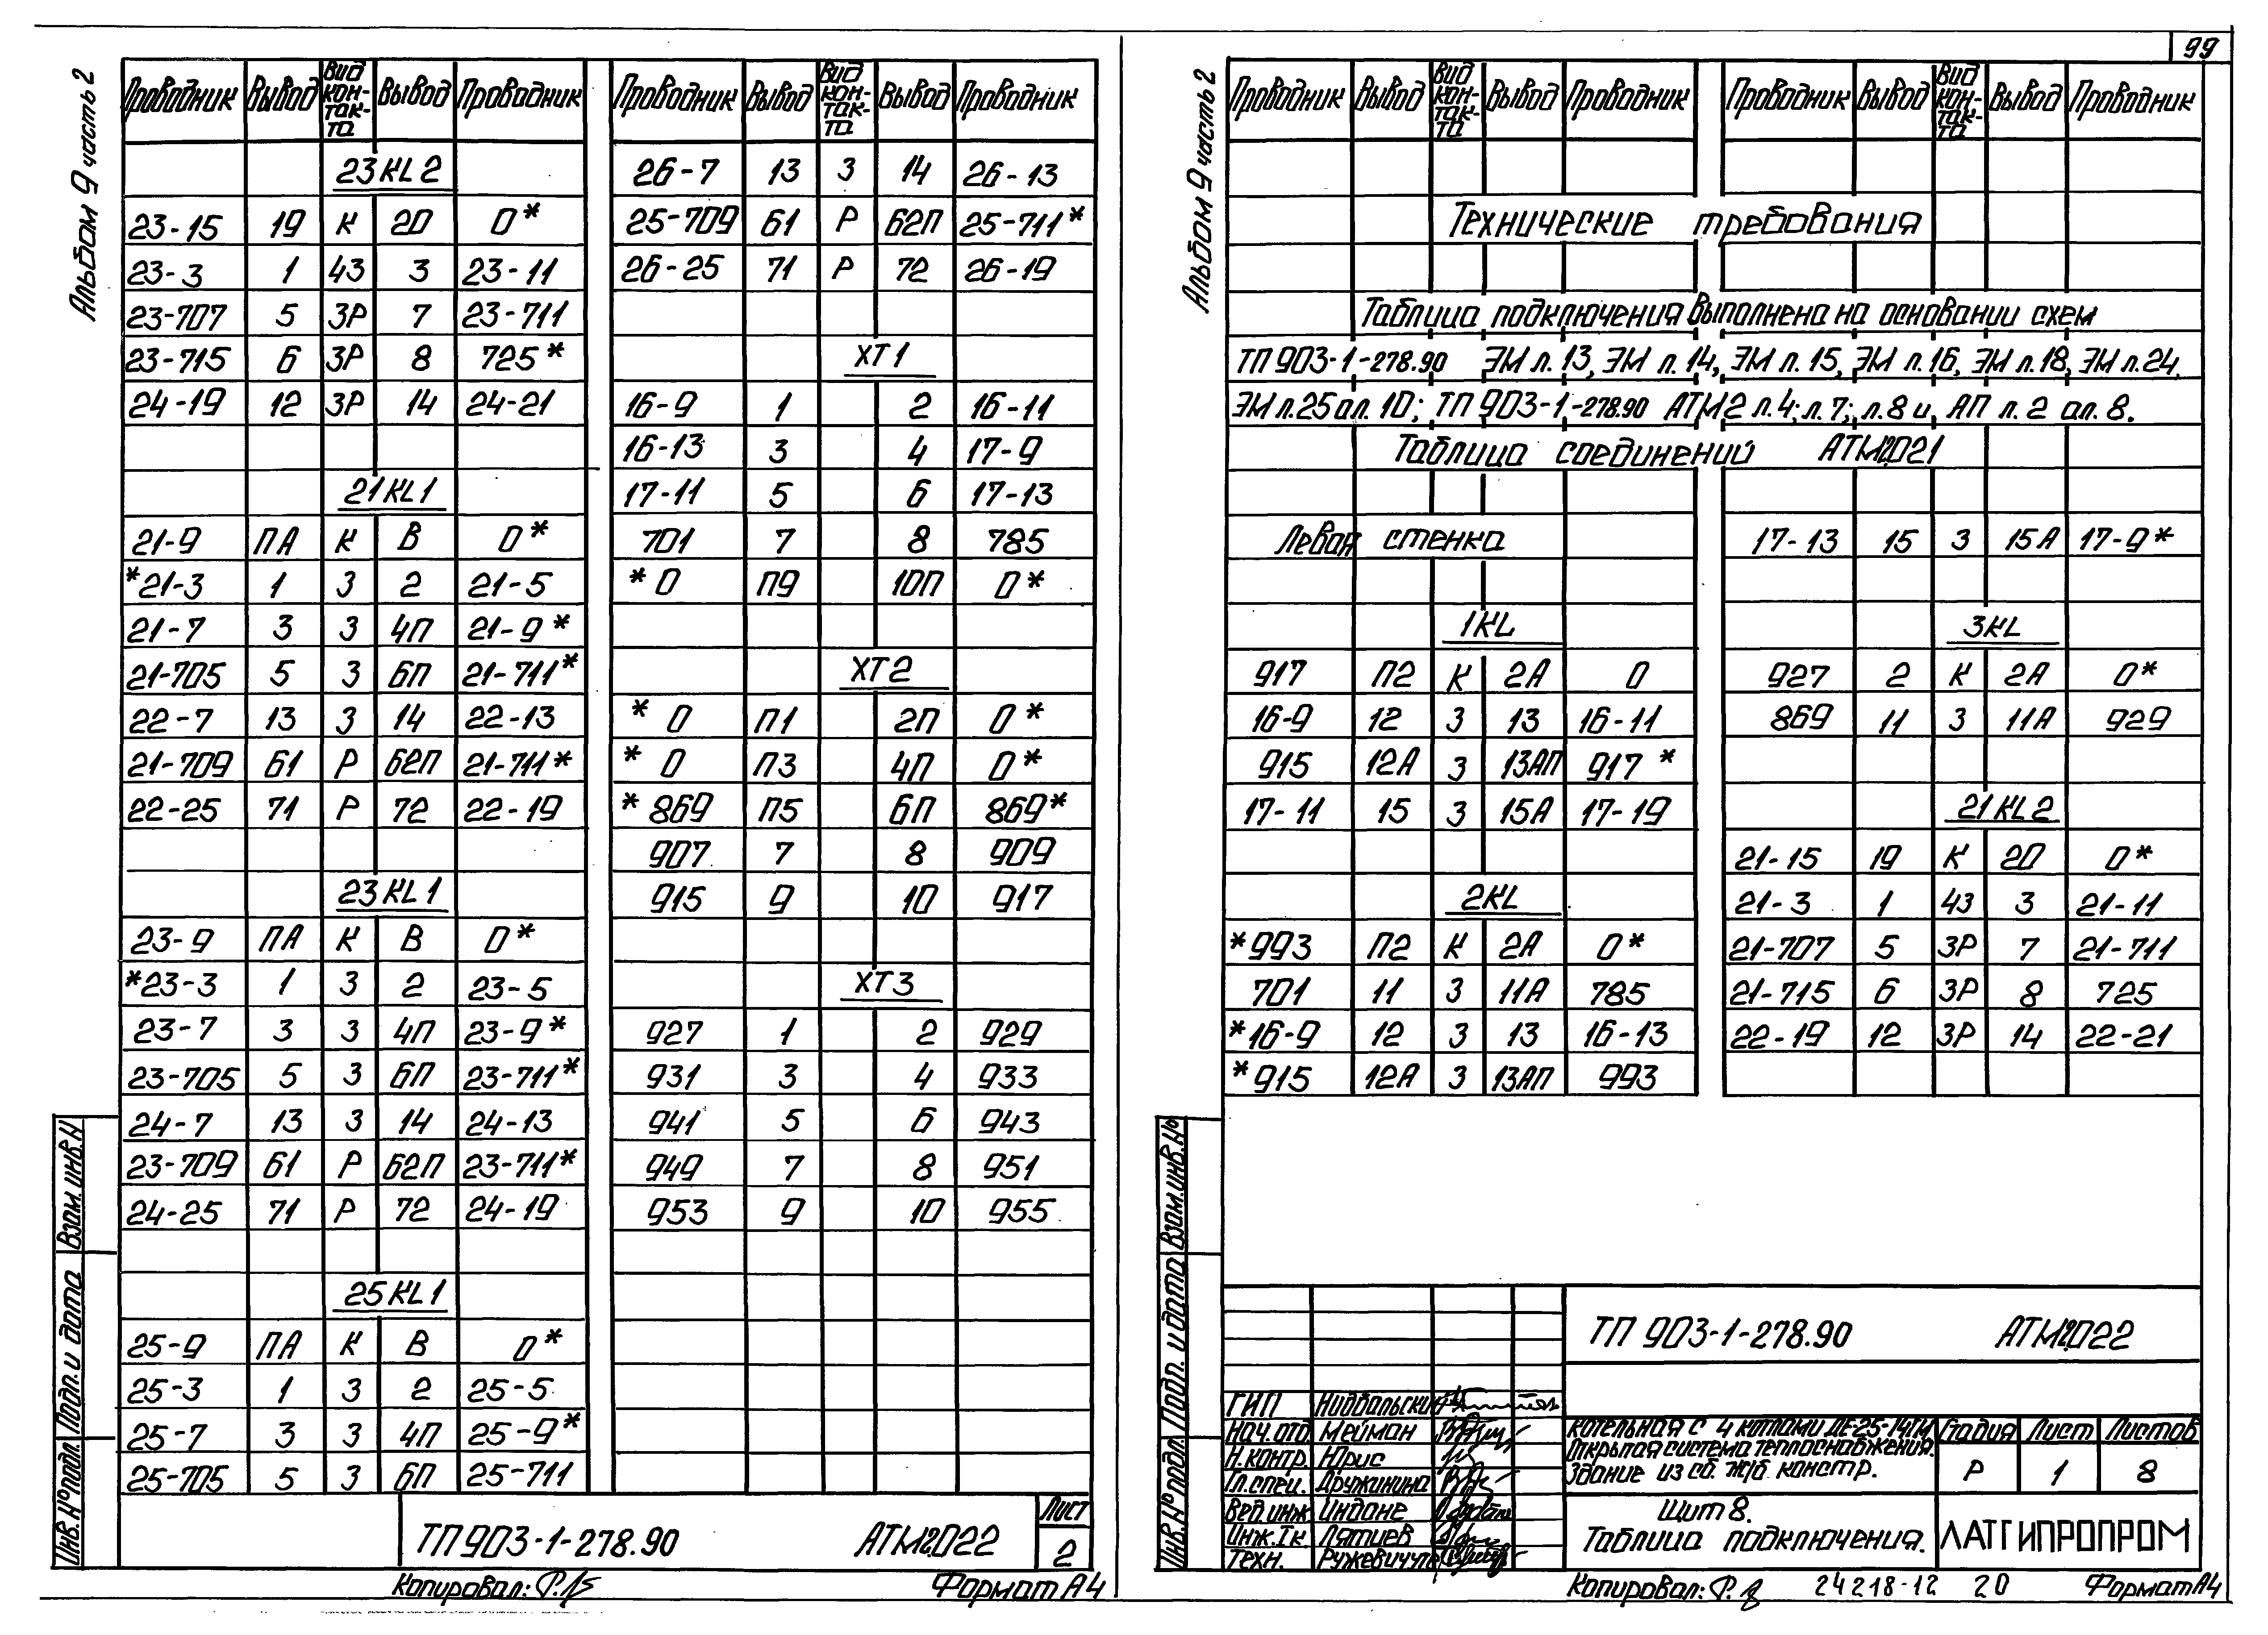 99
Альбом 9 часть 2
Проводник Вывод Вид кон-так-та Вывод Проводник
23KL2
23-15 19 К 20 0*
23-3 1 43 3 23-11
23-707 5 3Р 7 23-711
23-715 6 3Р 8 725*
24-19 12 3Р 14 24-21
21KL1
21-9 ПА К В 0*
*21-3 1 3 2 21-5
21-7 3 3 4П 21-9*
21-705 5 3 6П 21-711*
22-7 13 3 14 22-13
21-709 61 Р 62П 21-711*
22-25 71 Р 72 22-19
23KL1
23-9 ПА К В 0*
*23-3 1 3 2 23-5
23-7 3 3 4П 23-9*
23-705 5 3 6П 23-711*
24-7 13 3 14 24-13
23-709 61 Р 62П 23-711*
24-25 71 Р 72 24-19
25KL1
25-9 ПА К В 0*
25-3 1 3 2 25-5
25-7 3 3 4П 25-9*
25-705 5 3 6П 25-711
Проводник Вывод Вид кон-так-та Вывод Проводник
26-7 13 3 14 26-13
25-709 61 Р 62П 25-711*
26-25 71 Р 72 26-19
ХТ1
16-9 1 2 16-11
16-13 3 4 17-9
17-11 5 6 17-13
701 7 8 785
*0 П9 10П 0*
ХТ2
*0 П1 2П 0*
*0 П3 4П 0*
*869 П5 6П 869*
907 7 8 909
915 9 10 917
ХТ3
927 1 2 929
931 3 4 933
941 5 6 943
949 7 8 951
953 9 10 955
Инв.№подл. Подп. и дата Взам.инв.N
ТП 903-1-278.90 АТМ2.022
Лист
2
Копировал:
Формат А4
Альбом 9 часть 2
Проводник Вывод Вид кон-так-та Вывод Проводник Проводник Вывод Вид кон-так-та Вывод Проводник
Технические требования
Таблица подключения выполнена на основании схем
ТП 903-1-278.90 ЭМ л.13, ЭМ л.14, ЭМ л.15, ЭМ л.16, ЭМ л.18, ЭМ л.24,
ЭМ л.25 ал.10; ТП 903-1-278.90 АТМ2 л.4; л.7; л.8 и АП л.2 ал.8.
Таблица соединений АТМ2.021
Левая стенка
1KL
917 П2 К 2А 0
16-9 12 3 13 16-11
915 12А 3 13АП 917*
17-11 15 3 15А 17-19
2KL
*993 П2 К 2А 0*
701 11 3 11А 785
*16-9 12 3 13 16-13
*915 12А 3 13АП 993
17-13 15 3 15А 17-9*
3KL
927 2 К 2А 0*
869 11 3 11А 929
21KL2
21-15 19 К 20 0*
21-3 1 43 3 21-11
21-707 5 3Р 7 21-711
21-715 6 3Р 8 725
22-19 12 3Р 14 22-21
Инв.№подл. Подп. и дата Взам.инв.№
ТП 903-1-278.90 АТМ2.022
ГИП Нидбальский
Нач.отд. Мейман
Н.контр. Юрис
Гл.спец. Дружинина
Вед.инж. Индане
Инж.Iк. Лятиев
Техн. Ружевичуте
Котельная с 4 котлами ДЕ-25-14ГМ
Открытая система теплоснабжения.
Здание из сб. ж/б. констр.
Стадия Лист Листов
Р 1 8
Щит 8.
Таблица подключения.
ЛАТГИПРОПРОМ
Копировал:
24218-12 20
Формат А4